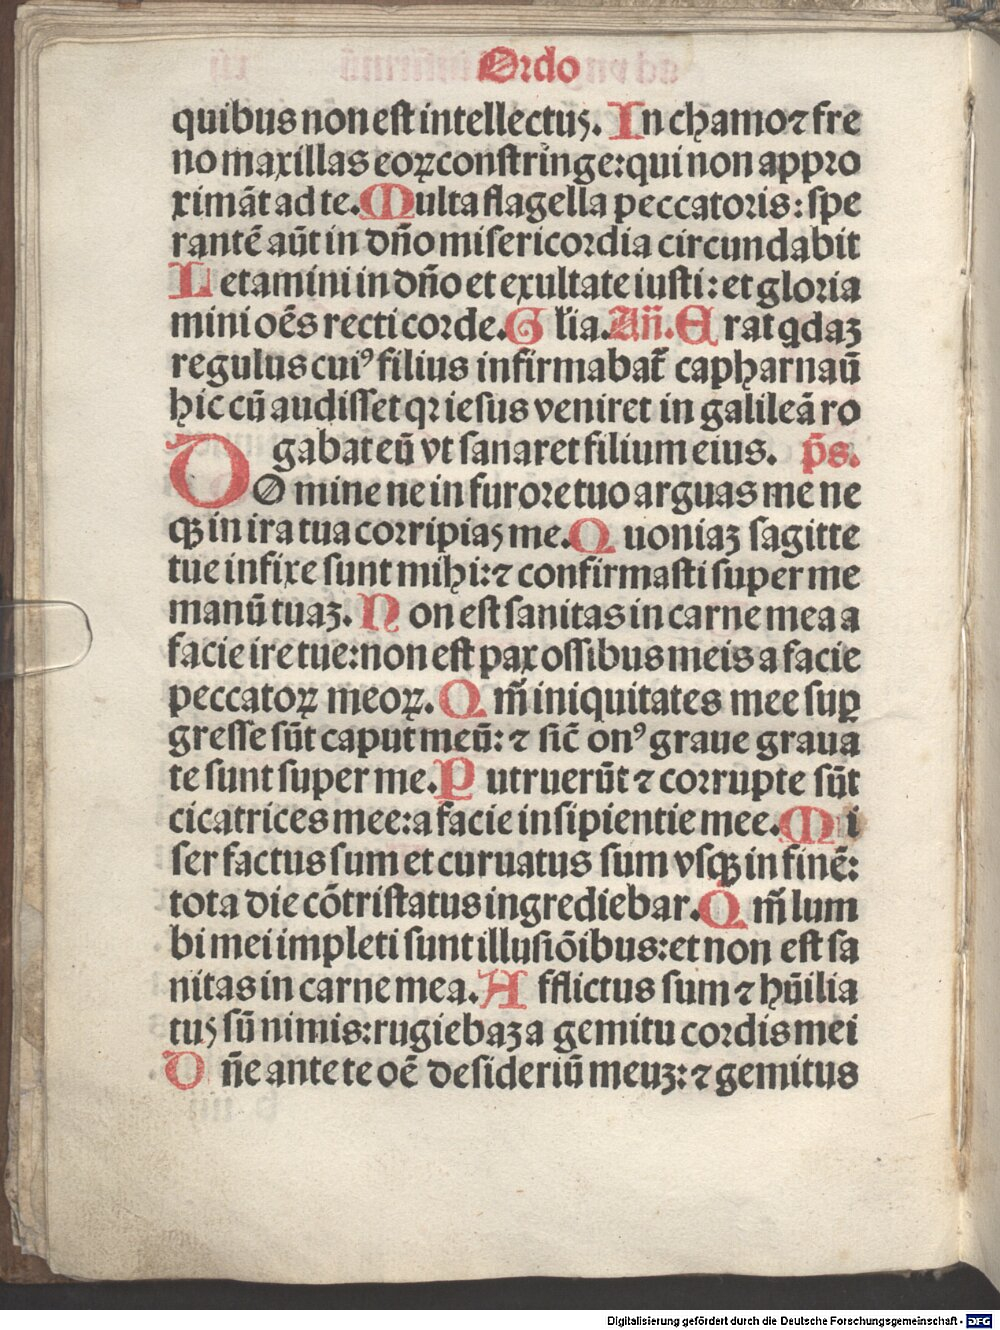 Ordo
quibus non est intellectus. In chamo ⁊ fre
no maxillas eoꝝ constringe: qui non appro
ximāt ad te. Multa flagella peccatoris: spe
rantē aūt in dño misericordia circundabit
Letamini in dño et exultate iusti: et gloria
mini oēs recti corde. Glia. Añ. Erat qdaꝫ
regulus cuiꝰ filius infirmabat̄ capharnaū
hic cū audisset qꝛ iesus veniret in galileā ro
gabat eū vt sanaret filium eius. p̄s.
DOmine ne in furore tuo arguas me ne
qꝫ in ira tua corripias me. Quoniaꝫ sagitte
tue infixe sunt mihi: ⁊ confirmasti super me
manū tuaꝫ. Non est sanitas in carne mea a
facie ire tue: non est pax ossibus meis a facie
peccatoꝝ meoꝝ. Qm̄ iniquitates mee suꝑ
gresse sūt caput meū: ⁊ sic̄ onꝰ graue graua
te sunt super me. Putruerūt ⁊ corrupte sūt
cicatrices mee: a facie insipientie mee. Mi
ser factus sum et curuatus sum vsqꝫ in finē:
tota die cōtristatus ingrediebar. Qm̄ lum
bi mei impleti sunt illusiōibus: et non est sa
nitas in carne mea. Afflictus sum ⁊ hūilia
tus sū nimis: rugiebaꝫ a gemitu cordis mei
Dñe ante te oē desideriū meuꝫ: ⁊ gemitus
Digitalisierung gefördert durch die Deutsche Forschungsgemeinschaft - DFG